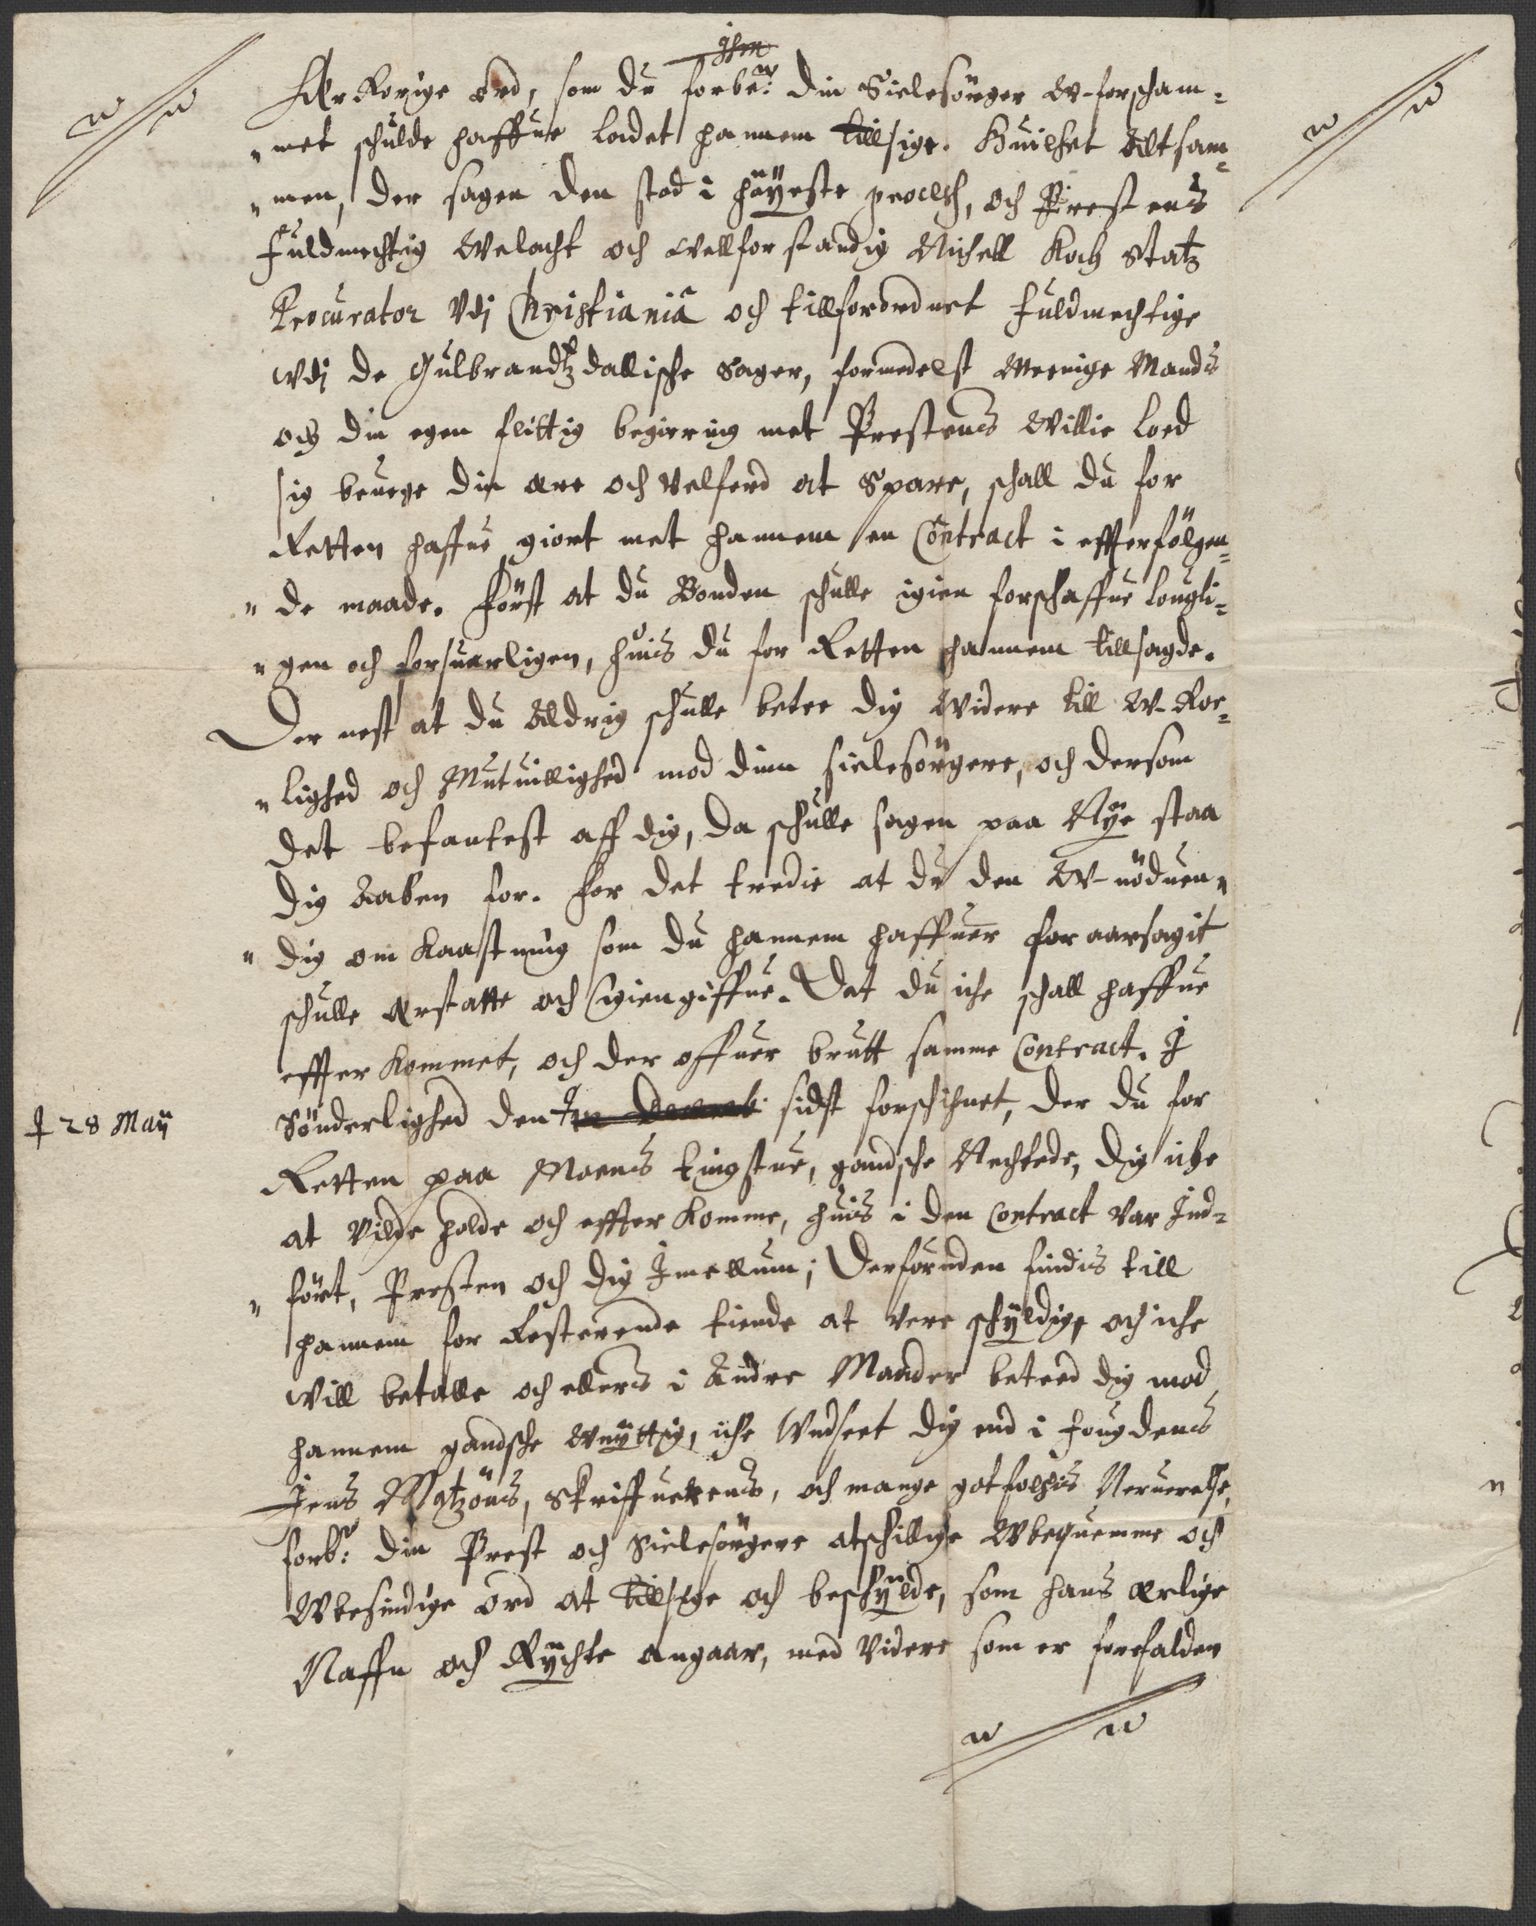 ÆrRørige ord, som du forbe:te din Sielesörger W-forscham=
"met schulde haffue ladet hannem tillsige. Huilket Altsam=
"men, der sagen den stod i höÿeste process, och Prestens
fuldmechtig Welacht och Wellforstandig Nichell Koch Statz
Procurator Vdj Christiania och tillforordnet fuldmechtige
Vdj de Gulbrandtzdallische Sager, formedelst Meenige Mands
och din egen flittig begiering met Prestens Willie loed
sig beuege din ære och Velferd at Spare, schall du for
Retten haffue giort met hannem en Contract i effterfölgen=
"de maade. Först at du Bonden schulle igien forschaffue lougli=
"gen och forsuarligen, huis du for Retten hannem tillsagde.
Der nest at du Aldrig schulle betee dig Widere till W-Roe=
"lighed och Mutuillighed mod dinn sielesörgere, och dersom
det befantest aff dig, da schulle sagen paa Nÿe staa
dig Aaben for. For det tredie at du den W-nöduen=
"dig om Kaastning som du hannem haffuer foraarsagit
schulle Erstatte och Igiengiffue. Dat du iche schall haffue
effter Kommet, och der offuer brutt samme Contract. I
Sönderlighed den sidst forschihnet, der du for
† 28 Maÿ
Retten paa Moens tingstue, gandsche Nechtede, dig iche
at Vilde holde och effter Komme, huis i den Contract Var Ind=
"fört, Presten och dig Imellum; Desforuden findis till
hannem for Resterende tiende at Vere schÿldig, och iche
Will betalle och ellers i Andre Maader beteed dig mod
hannem gandsche Wnÿttig, iche Vndseet dig end i fougdens
Jens Matzöns, Skriffuerens, och mange gotfolchis Neruerelse,
forb:te din Prest och Sielesörgere atschillige Wbequemme och
Wbesindige ord at tillsige och beschÿlde, som hans ærlige
Naffn och Rÿchte angaar, med Videre som er forefalden